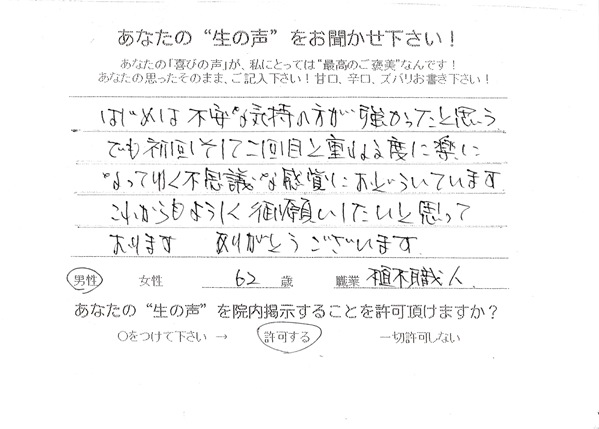 あなたの“生の声”をお聞かせ下さい！
あなたの「喜びの声」が、私にとっては“最高のご褒美”なんです！
あなたの思ったそのまま、ご記入下さい！甘口、辛口、ズバリお書き下さい！
はじめは不安な気持の方が強かったと思う
でも初回そして二回目と重ねる度に楽に
なってゆく不思議な感覚におどろいています
これからもよろしく御願いしたいと思って
おります ありがとうございます
男性 女性 62 歳 職業 植木職人
あなたの“生の声”を院内掲示することを許可頂けますか？
○をつけて下さい → 許可する 一切許可しない